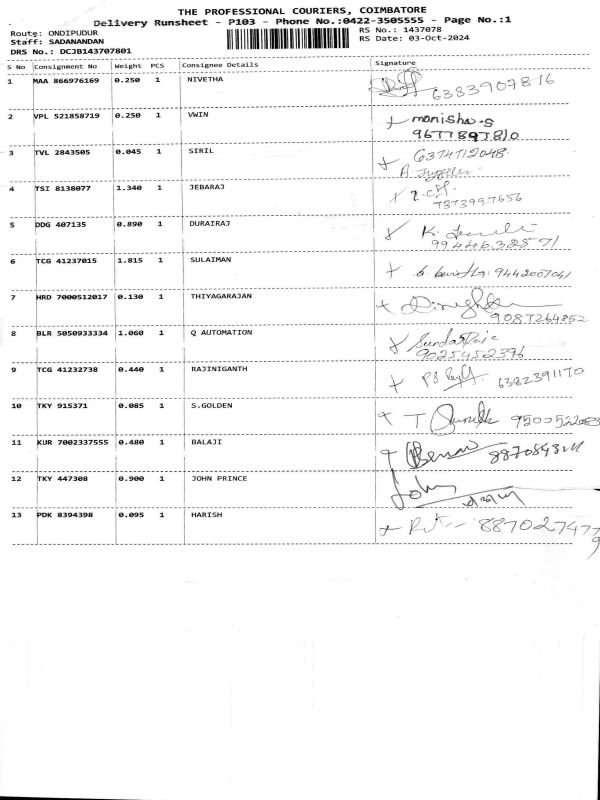 THE PROFESSIONAL COURIERS, COIMBATORE
Delivery Runsheet - P103 - Phone No.:0422-3505555 - Page No.:1
Route: ONDIPUDUR
RS No.: 1437078
Staff: SADANANDAN
RS Date: 03-Oct-2024
DRS No.: DCJB143707801
S No Consignment No Weight PCS Consignee Details Signature
1 MAA 866976169 0.250 1 NIVETHA 6383907816
2 VPL 521858719 0.250 1 VWIN manisha.s
9677897810
3 TVL 2843505 0.045 1 SIRIL 6374712048
4 TSI 8138077 1.340 1 JEBARAJ
7373997656
5 DDG 407135 0.890 1 DURAIRAJ K.
6 TCG 41237015 1.815 1 SULAIMAN 9442007041
7 HRD 7000512017 0.130 1 THIYAGARAJAN
9087264862
8 BLR 5050933334 1.060 1 Q AUTOMATION
9025452396
9 TCG 41232738 0.440 1 RAJINIGANTH 6382391170
10 TKY 915371 0.085 1 S.GOLDEN T
11 KUR 7002337555 0.480 1 BALAJI
12 TKY 447308 0.900 1 JOHN PRINCE John
13 PDK 8394398 0.095 1 HARISH 8870274779